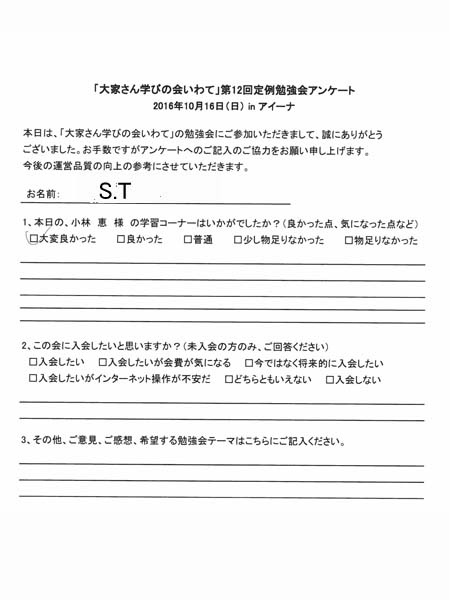 「大家さん学びの会いわて」第12回定例勉強会アンケート
2016年10月16日(日) in アイーナ
本日は、「大家さん学びの会いわて」の勉強会にご参加いただきまして、誠にありがとう
ございました。お手数ですがアンケートへのご記入のご協力をお願い申し上げます。
今後の運営品質の向上の参考にさせていただきます。
お名前: S.T
1、本日の、小林 恵 様 の学習コーナーはいかがでしたか?(良かった点、気になった点など)
□大変良かった □良かった □普通 □少し物足りなかった □物足りなかった
2、この会に入会したいと思いますか?(未入会の方のみ、ご回答ください)
□入会したい □入会したいが会費が気になる □今ではなく将来的に入会したい
□入会したいがインターネット操作が不安だ □どちらともいえない □入会しない
3、その他、ご意見、ご感想、希望する勉強会テーマはこちらにご記入ください。